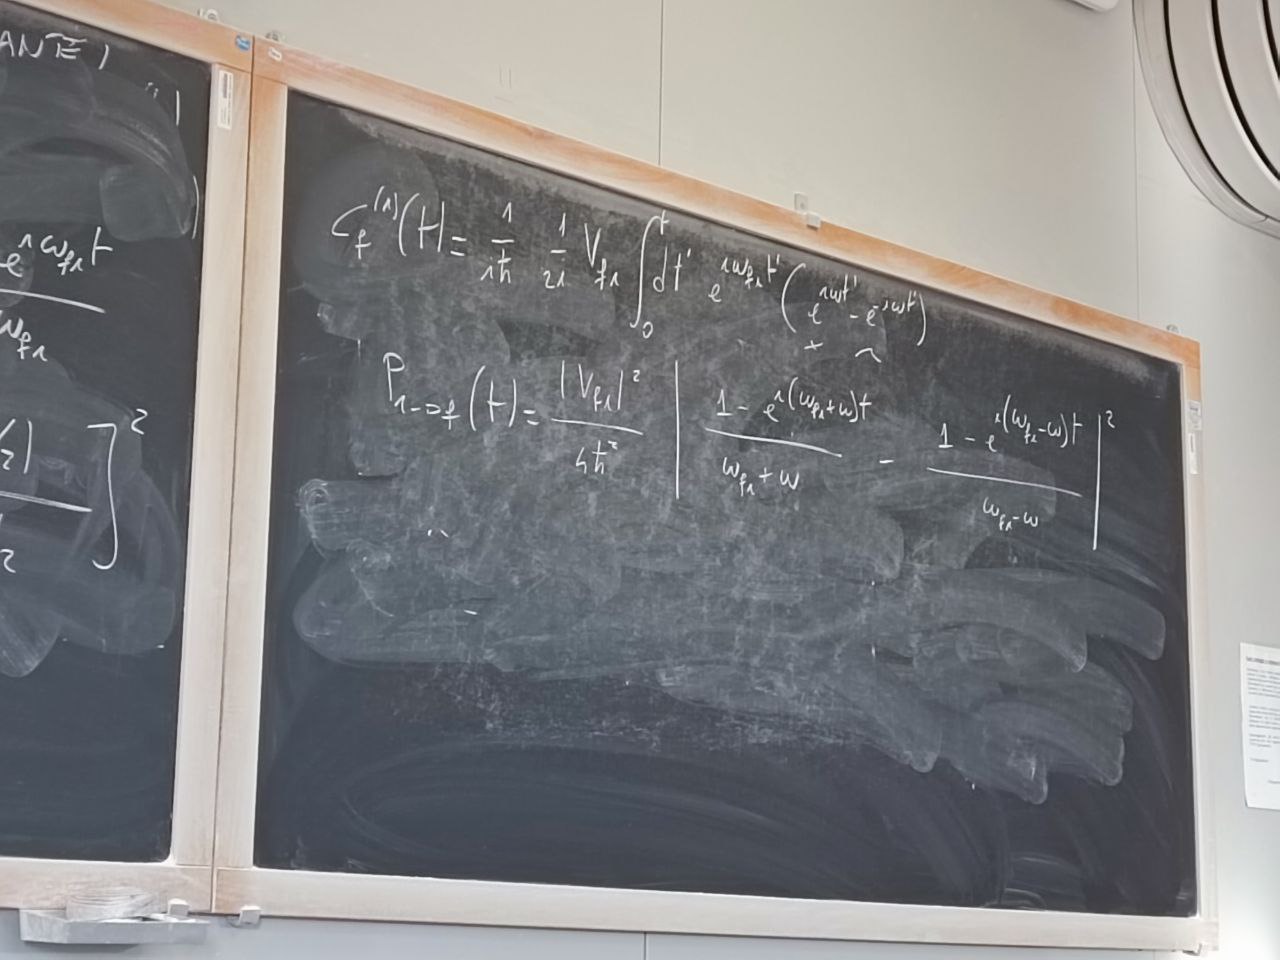 ANTE 1
e^{iω_{fi}t}
ω_{fi}
]^2
C_f^{(1)}(t) = 1/(iħ) 1/(2i) V_{fi} ∫_0^t dt' e^{iω_{fi}t'} (e^{iωt'} - e^{-iωt'})
P_{i→f}(t) = |V_{fi}|^2/(4ħ^2) | (1 - e^{i(ω_{fi}+ω)t})/(ω_{fi}+ω) - (1 - e^{i(ω_{fi}-ω)t})/(ω_{fi}-ω) |^2